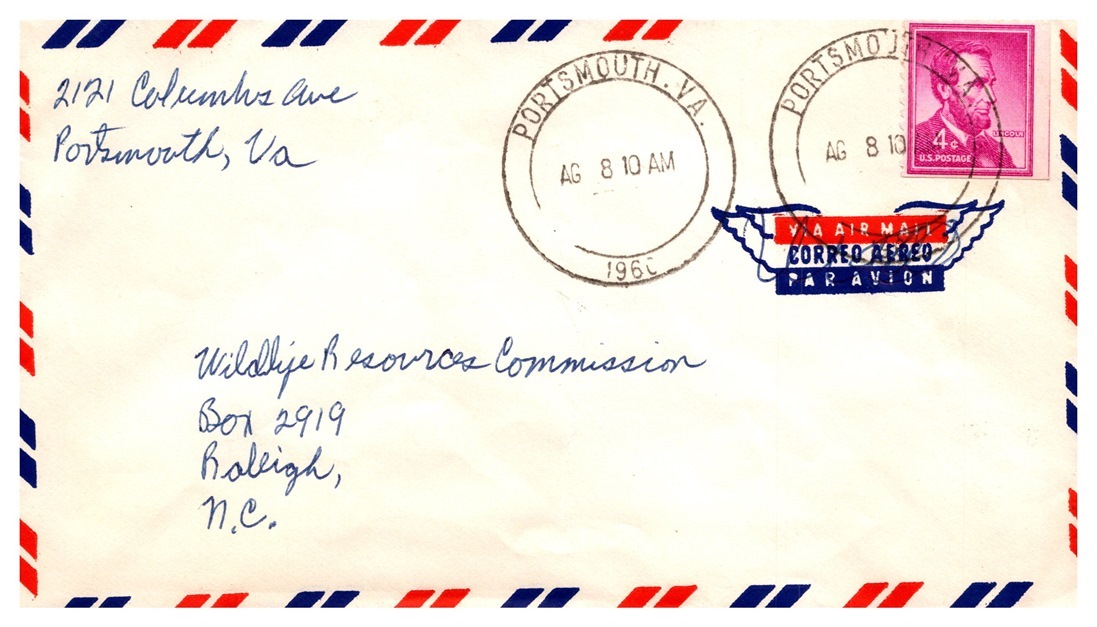 2121 Columbus Ave
Portsmouth, Va
PORTSMOUTH. VA.
AG 8 10 AM
1960
PORTSMOUTH. VA.
AG 8 10
LINCOLN
4¢
U.S. POSTAGE
VIA AIR MAIL
CORREO AEREO
PAR AVION
Wildlife Resources Commission
Box 2919
Raleigh,
N.C.